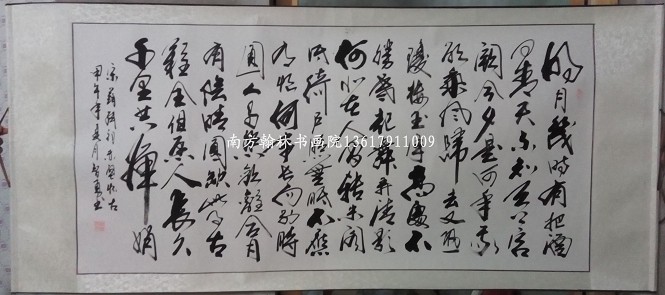 明月幾时有把酒
问青天不知天上宫
阙今夕是何年我
欲乘风归去又恐
琼楼玉宇高处不
胜寒起舞弄清影
何似在人间转朱阁
低绮户照无眠不應
有恨何事长向别时
圆人有悲歡離合月
有陰晴圆缺此事古
難全但愿人長久
千里共婵娟
甲午年夏月
南方翰林书画院13617911009